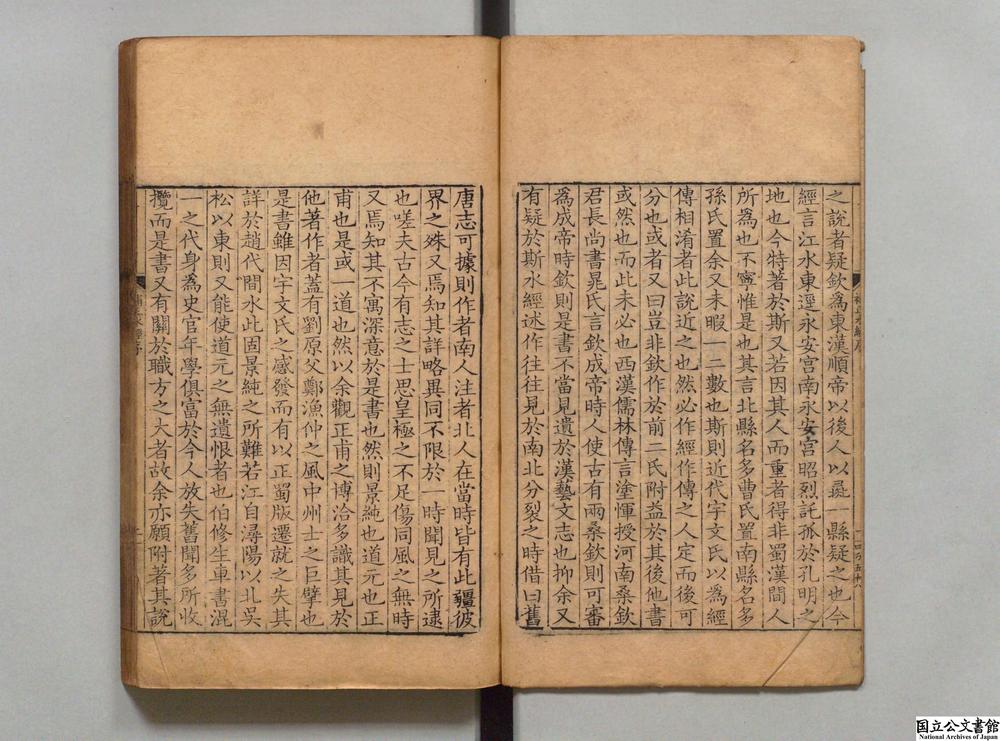 之說者疑欽為東漢順帝以後人以彘一縣疑之也今
經言江水東逕永安宮南永安宮昭烈託孤於孔明之
地也今特著於斯又若因其人而重者得非蜀漢間人
所為也不寧惟是也其言北縣名多曹氏置南縣名多
孫氏置余又未暇一二數也斯則近代宇文氏以為經
傳相淆者此說近之也然必作經作傳之人定而後可
分也或者又曰豈非欽作於前二氏附益於其後他書
或然也而此未必也西漢儒林傳言塗惲授河南桑欽
君長尚書晁氏言欽成帝時人使古有兩桑欽則可審
為成帝時欽則是書不當見遺於漢藝文志也抑余又
有疑於斯水經述作往往見於南北分裂之時借曰舊
唐志可據則作者南人注者北人在當時皆有此疆彼
界之殊又焉知其詳略異同不限於一時聞見之所逮
也嗟夫古今有志之士思皇極之不足傷同風之無時
又焉知其不寓深意於是書也然則景純也道元也正
甫也是或一道也然以余觀正甫之博洽多識其見於
他著作者蓋有劉原父鄭漁仲之風中州士之巨擘也
是書雖因宇文氏之感發而有以正蜀版遷就之失其
詳於趙代間水此固景純之所難若江自潯陽以北吳
松以東則又能使道元之無遺恨者也伯修生車書混
一之代身為史官年學俱富於今人放失舊聞多所收
攬而是書又有關於職方之大者故余亦願附著其說
国立公文書館
National Archives of Japan